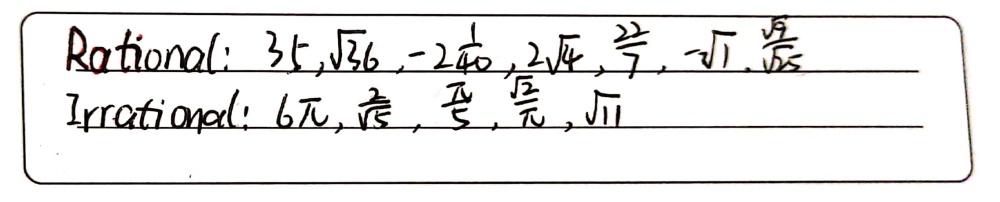 Rational: 35, √36, -2 1/40, 2√4, 22/7, -√1, √9/√25
Irrational: 6π, 2/√5, π/5, √2/π, √11